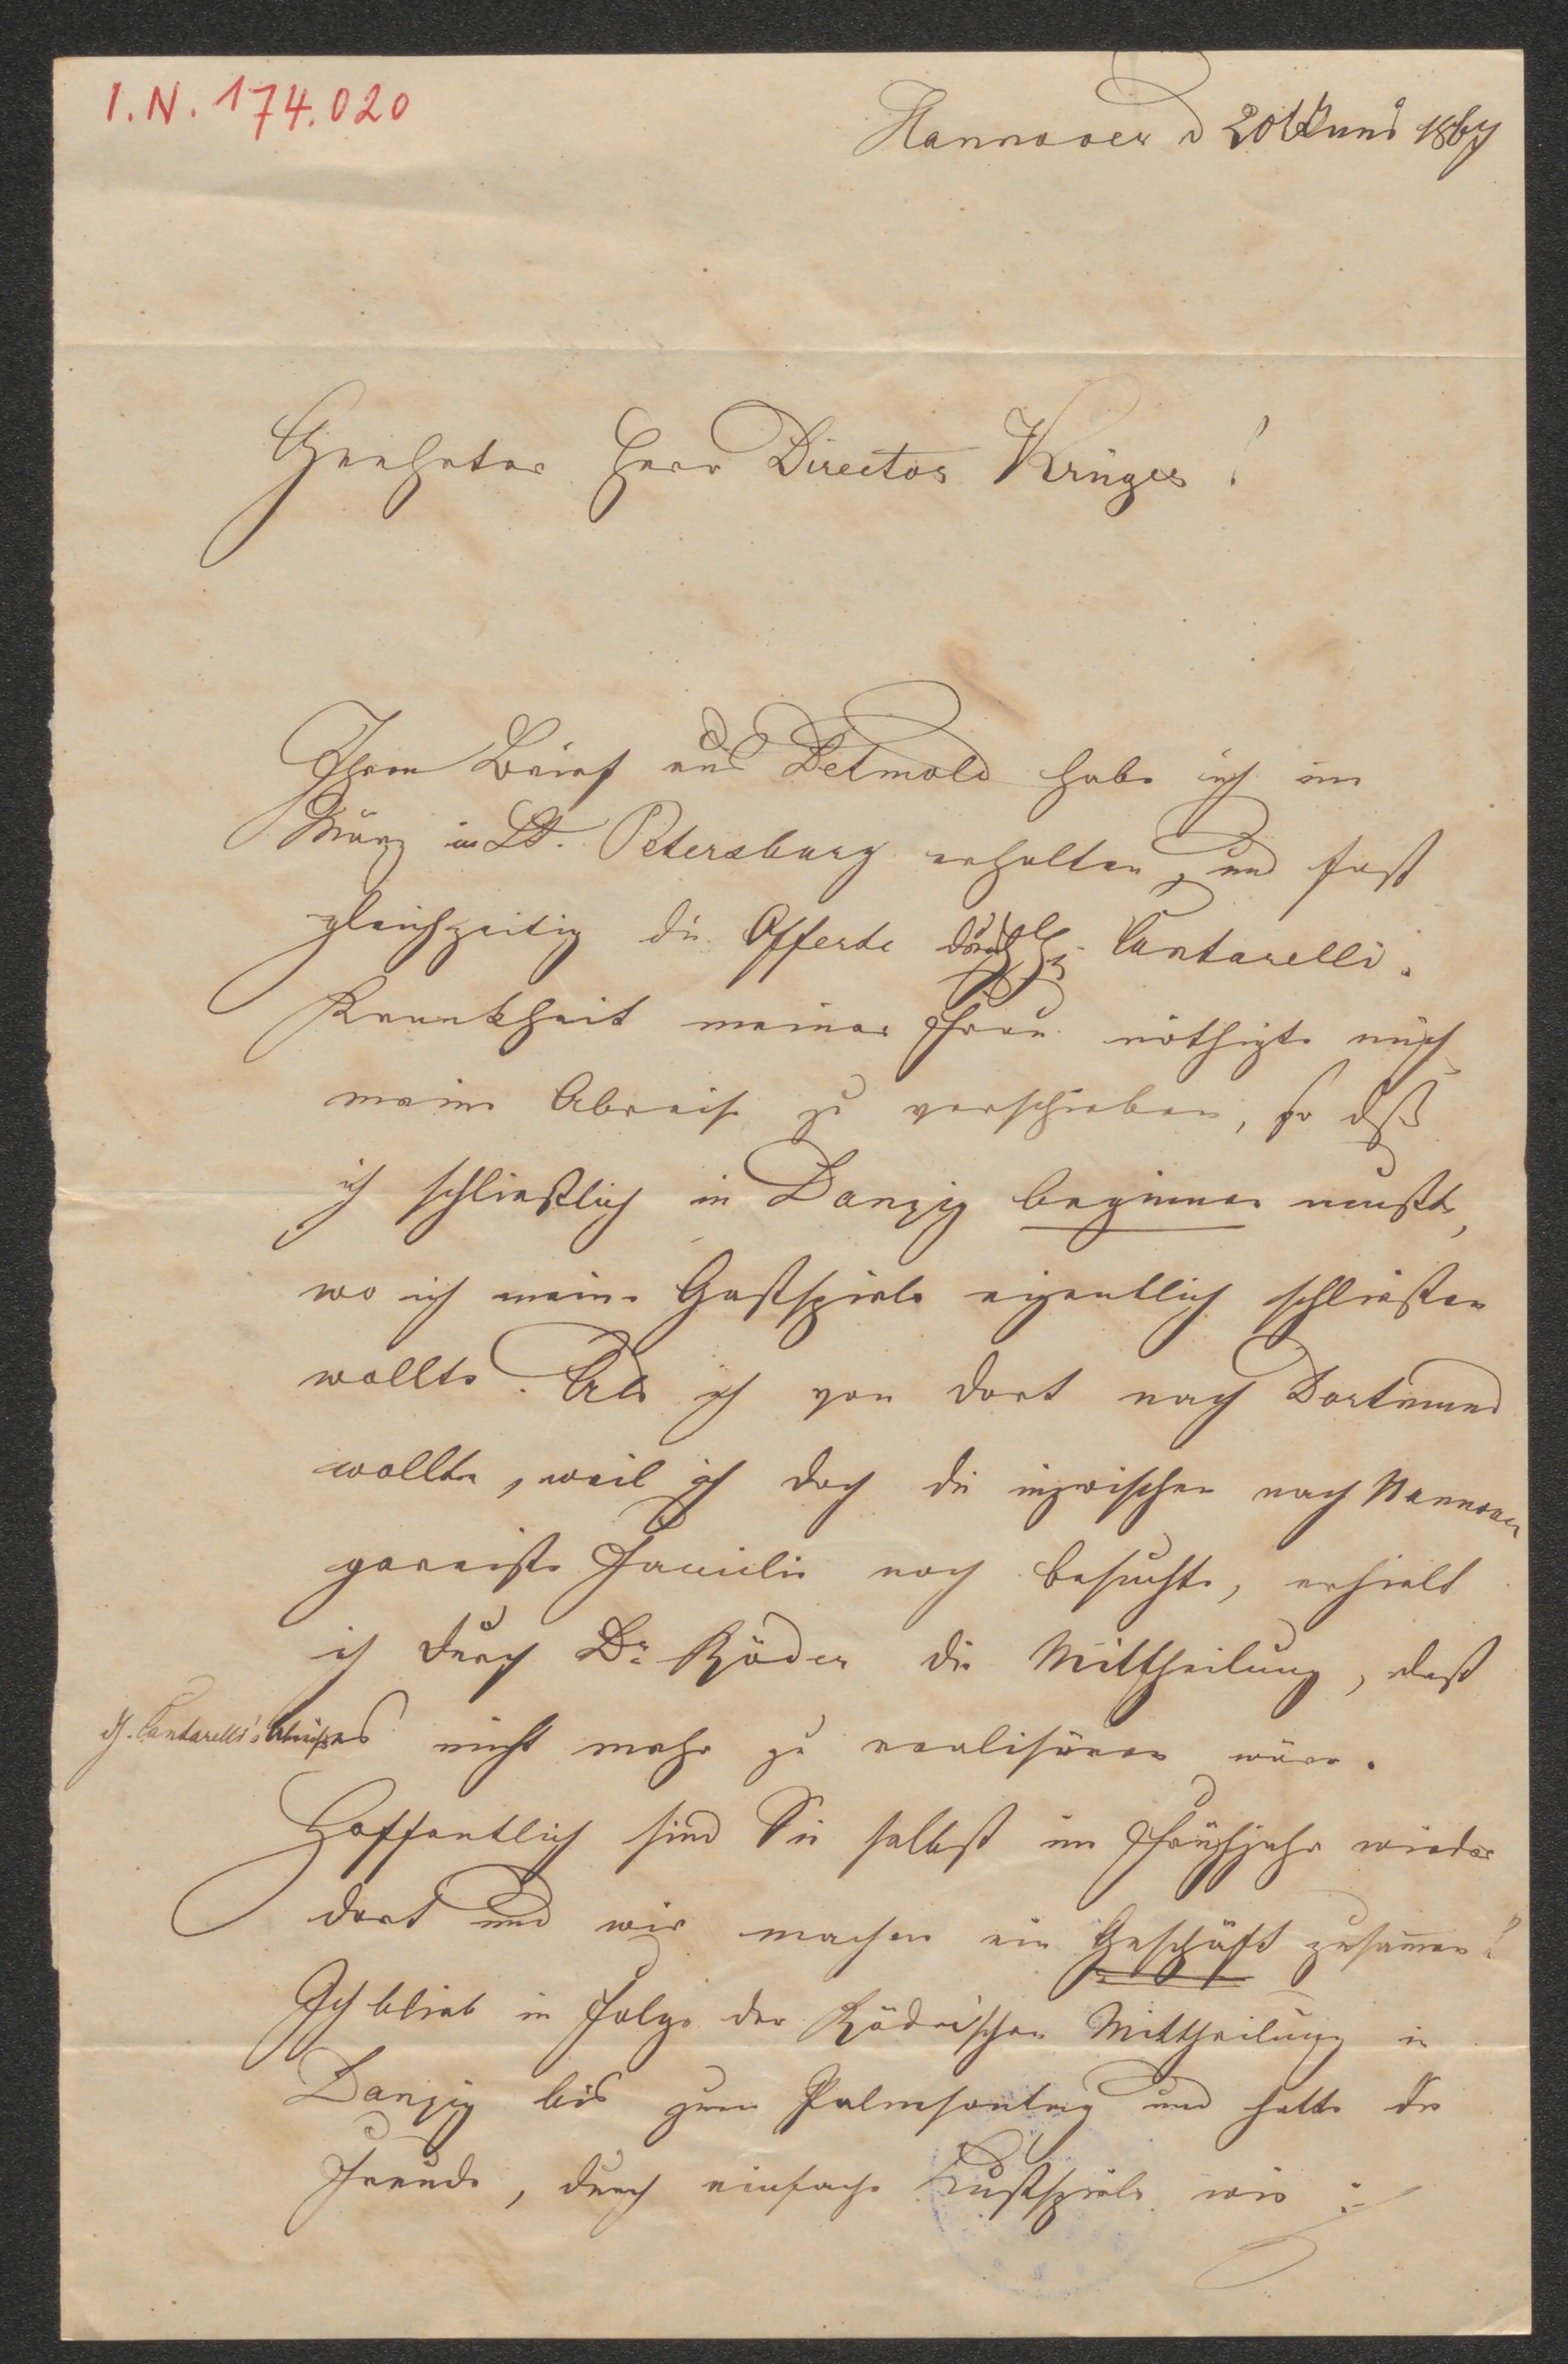 I.N. 174.020
Hannover d 20t Juni 1867
Geehrter Herr Director Krüger!
Ihren Brief aus Detmold habe ich im
März in St. Petersburg erhalten, und fast
gleichzeitig die Offerte durch H: Cantarelli.
Krankheit meiner Frau nöthigte mich
meine Abreise zu verschieben, so daß
ich schließlich in Danzig beginnen mußte,
wo ich meine Gastspiele eigentlich schließen
wollte. Als ich von dort nach Dortmund
wollte, weil ich doch die inzwischen nach Hannover
gereiste Familie noch besuchte, erhielt
ich durch Dr Röder die Mittheilung, daß
H. Cantarelli's nicht mehr zu realisiren wäre.
Hoffentlich sind Sie selbst im Frühjahr wieder
dort und wir machen ein Geschäft zusammen?
Ich blieb in Folge der Röder'schen Mittheilung in
Danzig bis zum Palmsontag und hatte die
Freude, durch einfache Lustspiele wie :